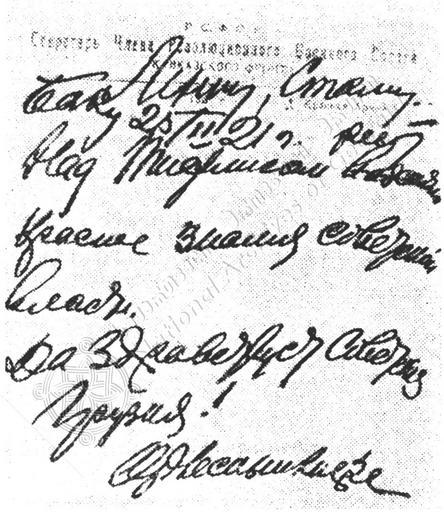 Р.С.Ф.С.Р.
Секретарь Члена Революционного Военного Совета
Кавказского фронта
Ленину, Сталину.
Баку 25/II 21 г.
Над Тифлисом
красное знамя советской
власти.
Да здравствует Советская
Грузия!
Орджоникидзе
National Archives of